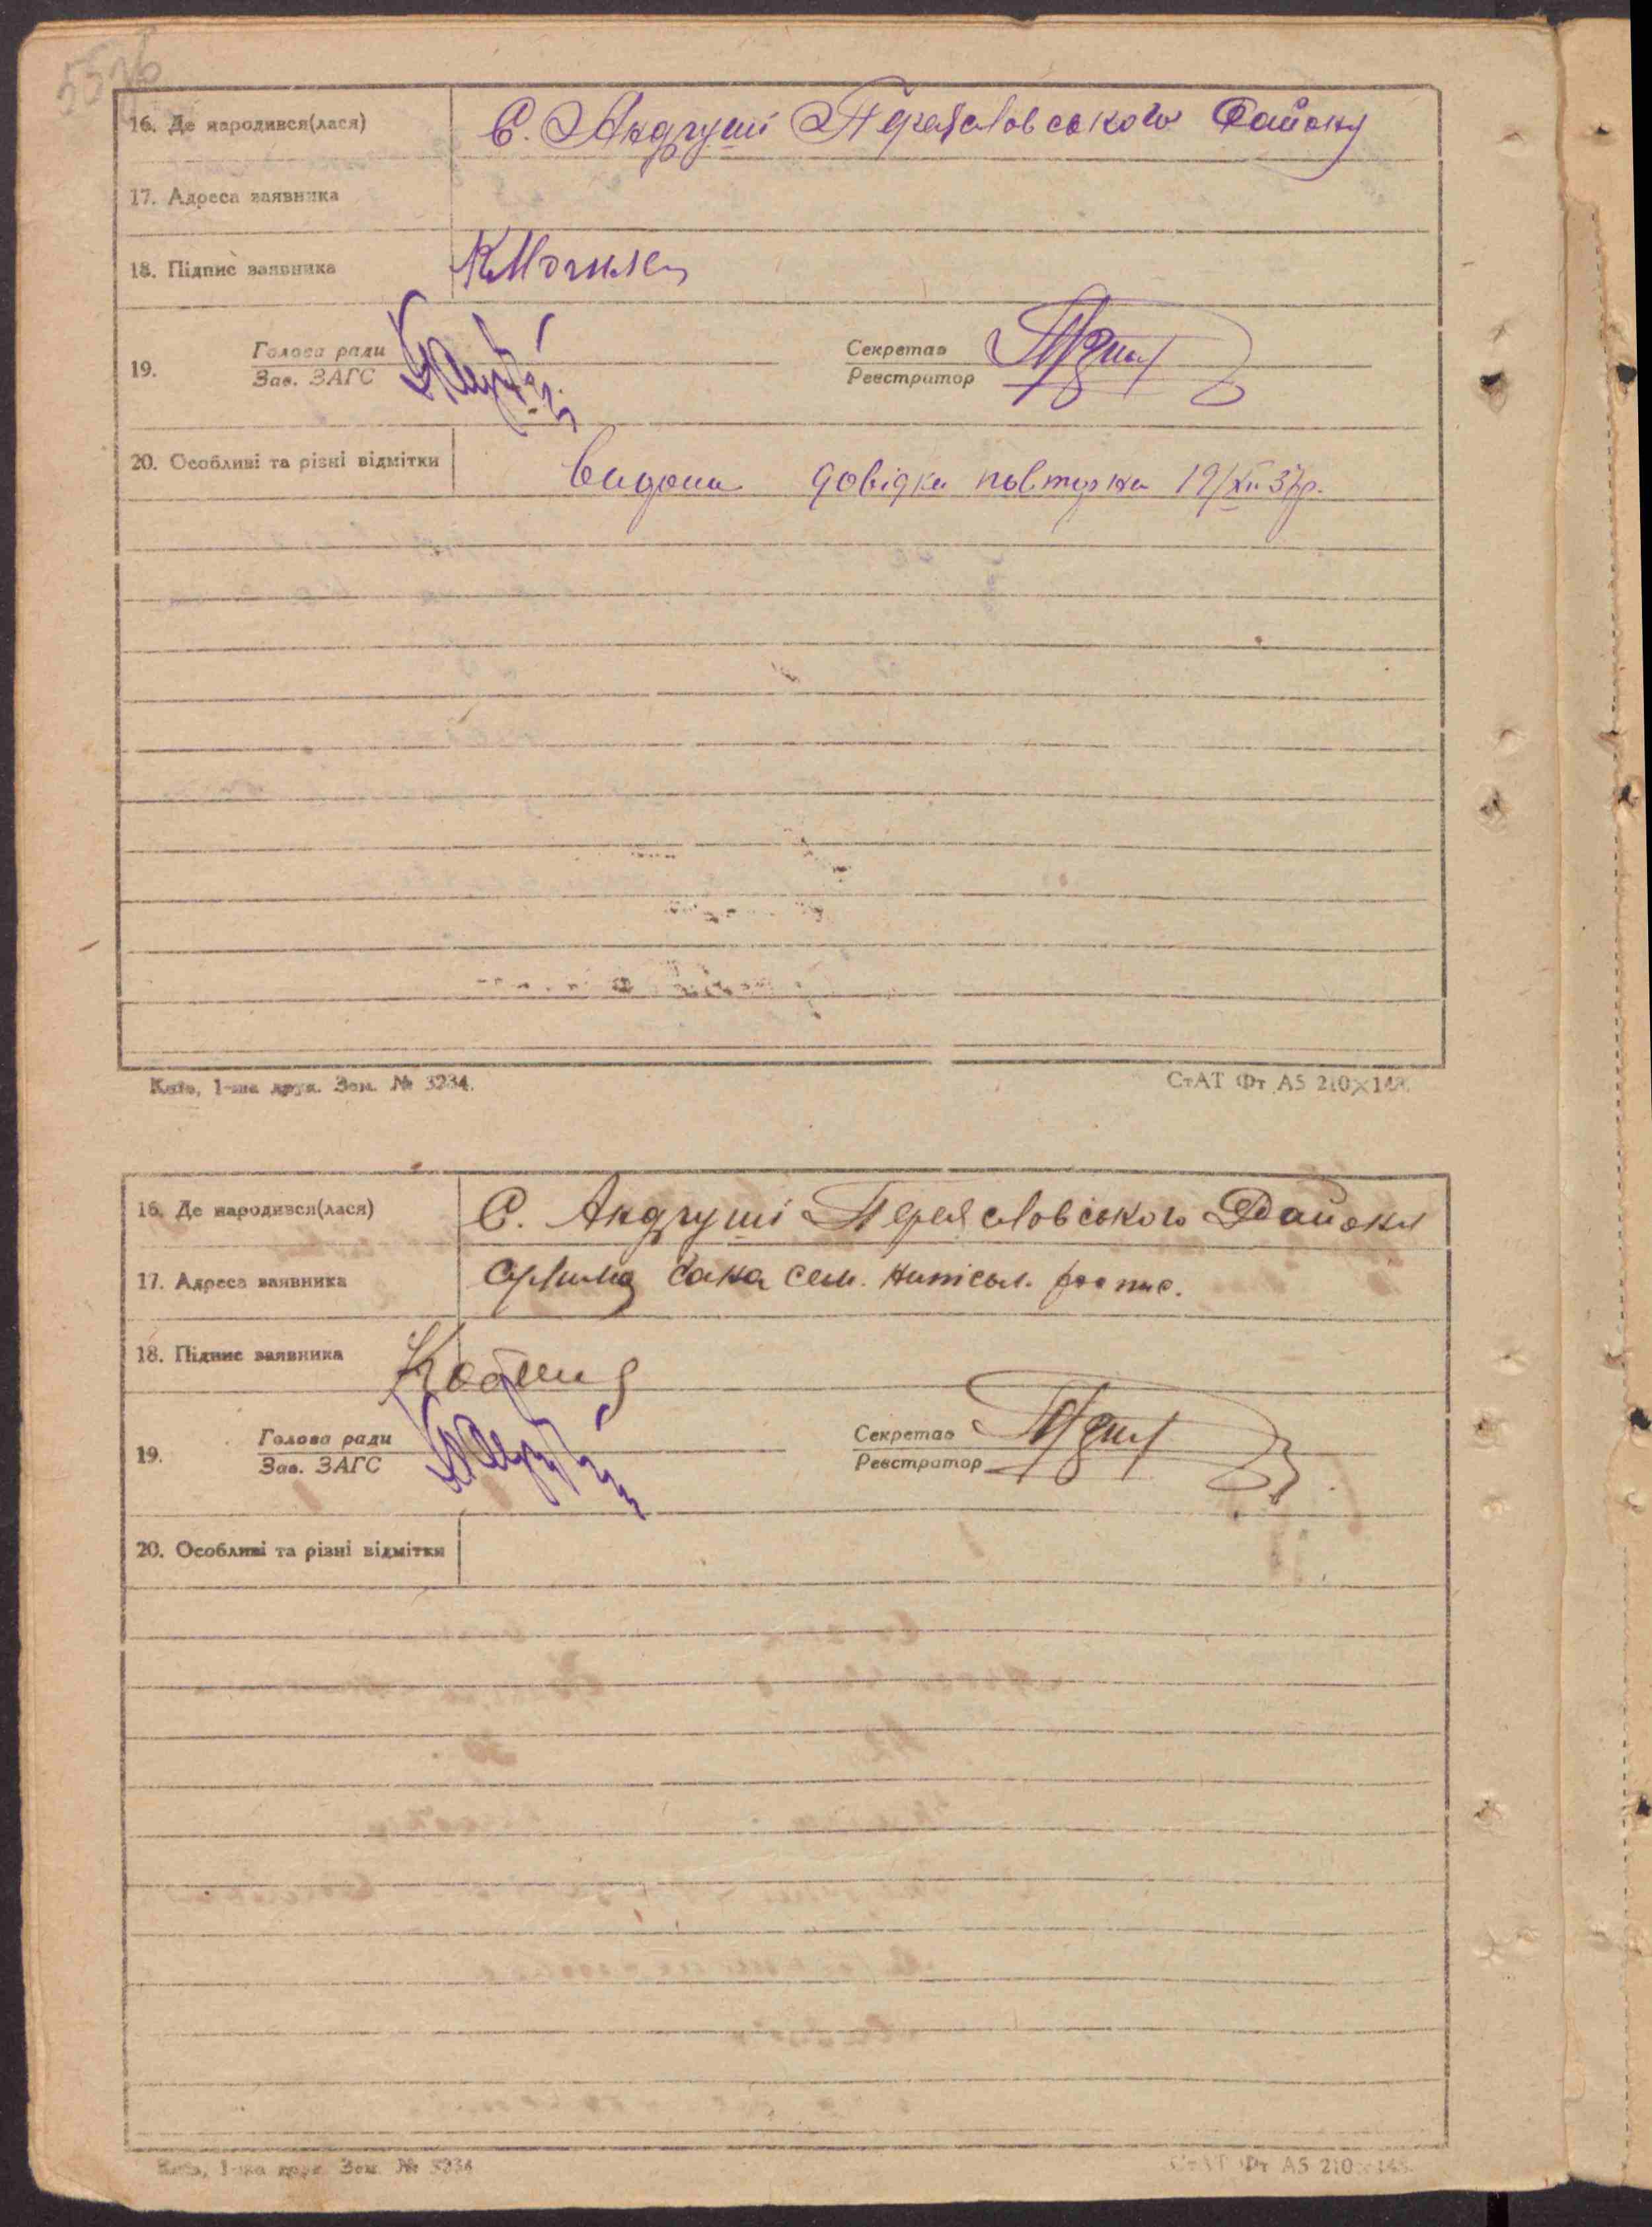 16. Де народився(лася) С. Андруші Переяславського Району
17. Адреса заявника
18. Підпис заявника КМогилец
19. Голова ради
Зав. ЗАГС
Секретар
Реєстратор
20. Особливі та різні відмітки Видана довідка повторна 19/XII 37р.
Київ, 1-ша друк. Зам. № 3234.
СтАТ Фт А5 210×148.
16. Де народився(лася) С. Андруші Переяславського Району
17. Адреса заявника
18. Підпис заявника
19. Голова ради
Зав. ЗАГС
Секретар
Реєстратор
20. Особливі та різні відмітки
Київ, 1-ша друк. Зам. № 3234
СтАТ Фт А5 210×148.